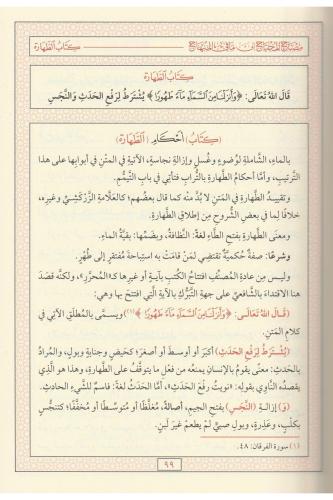 كِتَابُ الطَّهَارَةِ
كِتَابُ الطَّهَارَةِ
قَالَ اللهُ تَعَالَى: ﴿وَأَنزَلْنَا مِنَ السَّمَآءِ مَآءً طَهُورًا﴾ يُشْتَرَطُ لِرَفْعِ الحَدَثِ وَالنَّجَسِ
(كِتَابُ) أَحْكَامِ (الطَّهَارَةِ)
بالماءِ، الشَّاملةِ لوُضوءٍ وغُسلٍ وإزالةِ نجاسةٍ، الآتيةِ في المتْنِ في أبوابِها على هذا
التَّرتيبِ، وأمَّا أحكامُ الطَّهارةِ بالتُّرابِ فتأتي في بابِ التَّيمُّمِ.
وتقييدُ الطَّهارةِ في المَتنِ لا بُدَّ منْه كما قال بعضُهم؛ كالعلَّامةِ الزَّرْكَشِيِّ وغيرِه،
خلافًا لِما في بعضِ الشُّروحِ مِن إطلاقِ الطَّهارةِ.
ومعنَى الطَّهارةِ بفتحِ الطَّاءِ لغةً: النَّظافةُ، وبضمِّها: بقيَّةُ الماءِ.
وشرعًا: صفةٌ حُكميَّةٌ تقتضِي لمَنْ قامَتْ به استباحةَ مُفتقرٍ إلى طُهْرٍ.
وليس مِن عادةِ المصنِّفِ افتتاحُ الكُتبِ بآيةٍ أو غيرِها كـ«المُحرَّر»، ولكنَّه قصَدَ
هنا الاقتداءَ بالشَّافعيِّ على جهةِ التَّبرُّكِ بالآيةِ الَّتي افتتحَ بها وهي:
(قَالَ اللهُ تَعَالَى: ﴿وَأَنزَلْنَا مِنَ السَّمَآءِ مَآءً طَهُورًا﴾(١)) ويسمَّى بالمُطلَقِ الآتي في
كلامِ المَتنِ.
(يُشْتَرَطُ لِرَفْعِ الحَدَثِ) أكبرَ أو أوسطَ أو أصغرَ؛ كحَيضٍ وجنابةٍ وبولٍ، والمُرادُ
بالحدَثِ: معنًى يقومُ بالإنسانِ يمنعُه مِن فعلِ ما يتوقَّفُ على الطَّهارةِ، وهذا هو الَّذي
يقصدُه النَّاوي بقولِه: «نويتُ رفعَ الحدَثِ»، أمَّا الحدَثُ لغةً: فاسمٌ للشَّيءِ الحادثِ.
(وَ) إزالةِ (النَّجَسِ) بفتحِ الجيمِ، أصالةً، مُغلَّظًا أو مُتوسِّطًا أو مُخفَّفًا؛ كتنجُّسٍ
بكلبٍ، وعَذِرةٍ، وبولِ صبيٍّ لم يَطعمْ غيرَ لبنٍ.
(١) سورة الفرقان: ٤٨.
٩٩